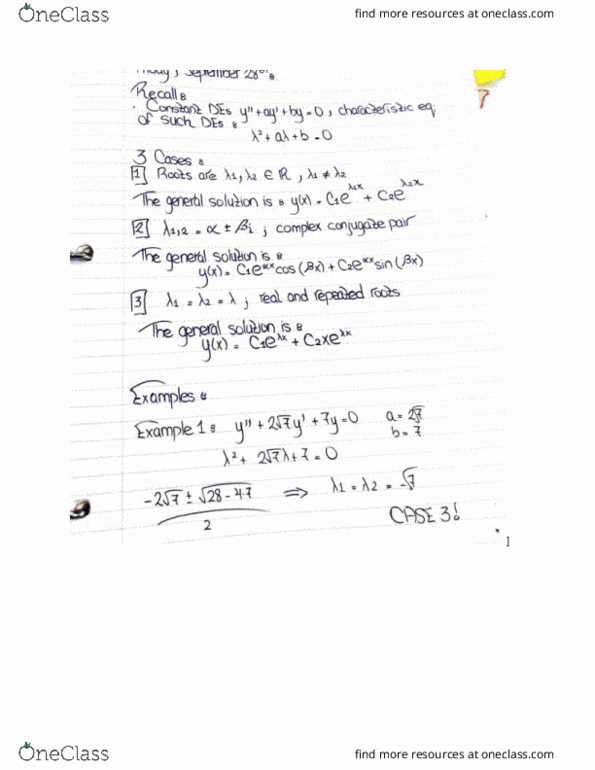 OneClass
find more resources at oneclass.com
September 28th
Recall:
• Constant DEs y'' + ay' + by = 0, characteristic eq.
of such DEs:
λ² + aλ + b = 0
7
3 Cases:
1 Roots are λ1, λ2 ∈ ℝ, λ1 ≠ λ2
The general solution is: y(x) = C1e^λ1x + C2e^λ2x
2 λ1,2 = α ± βi ; complex conjugate pair
The general solution is:
y(x) = C1e^αx cos(βx) + C2e^αx sin(βx)
3 λ1 = λ2 = λ ; real and repeated roots
The general solution is:
y(x) = C1e^λx + C2xe^λx
Examples:
Example 1: y'' + 2√7y' + 7y = 0 a = 2√7
b = 7
λ² + 2√7λ + 7 = 0
-2√7 ± √28 - 4·7 ⟹ λ1 = λ2 = -√7
2
CASE 3!
OneClass
find more resources at oneclass.com